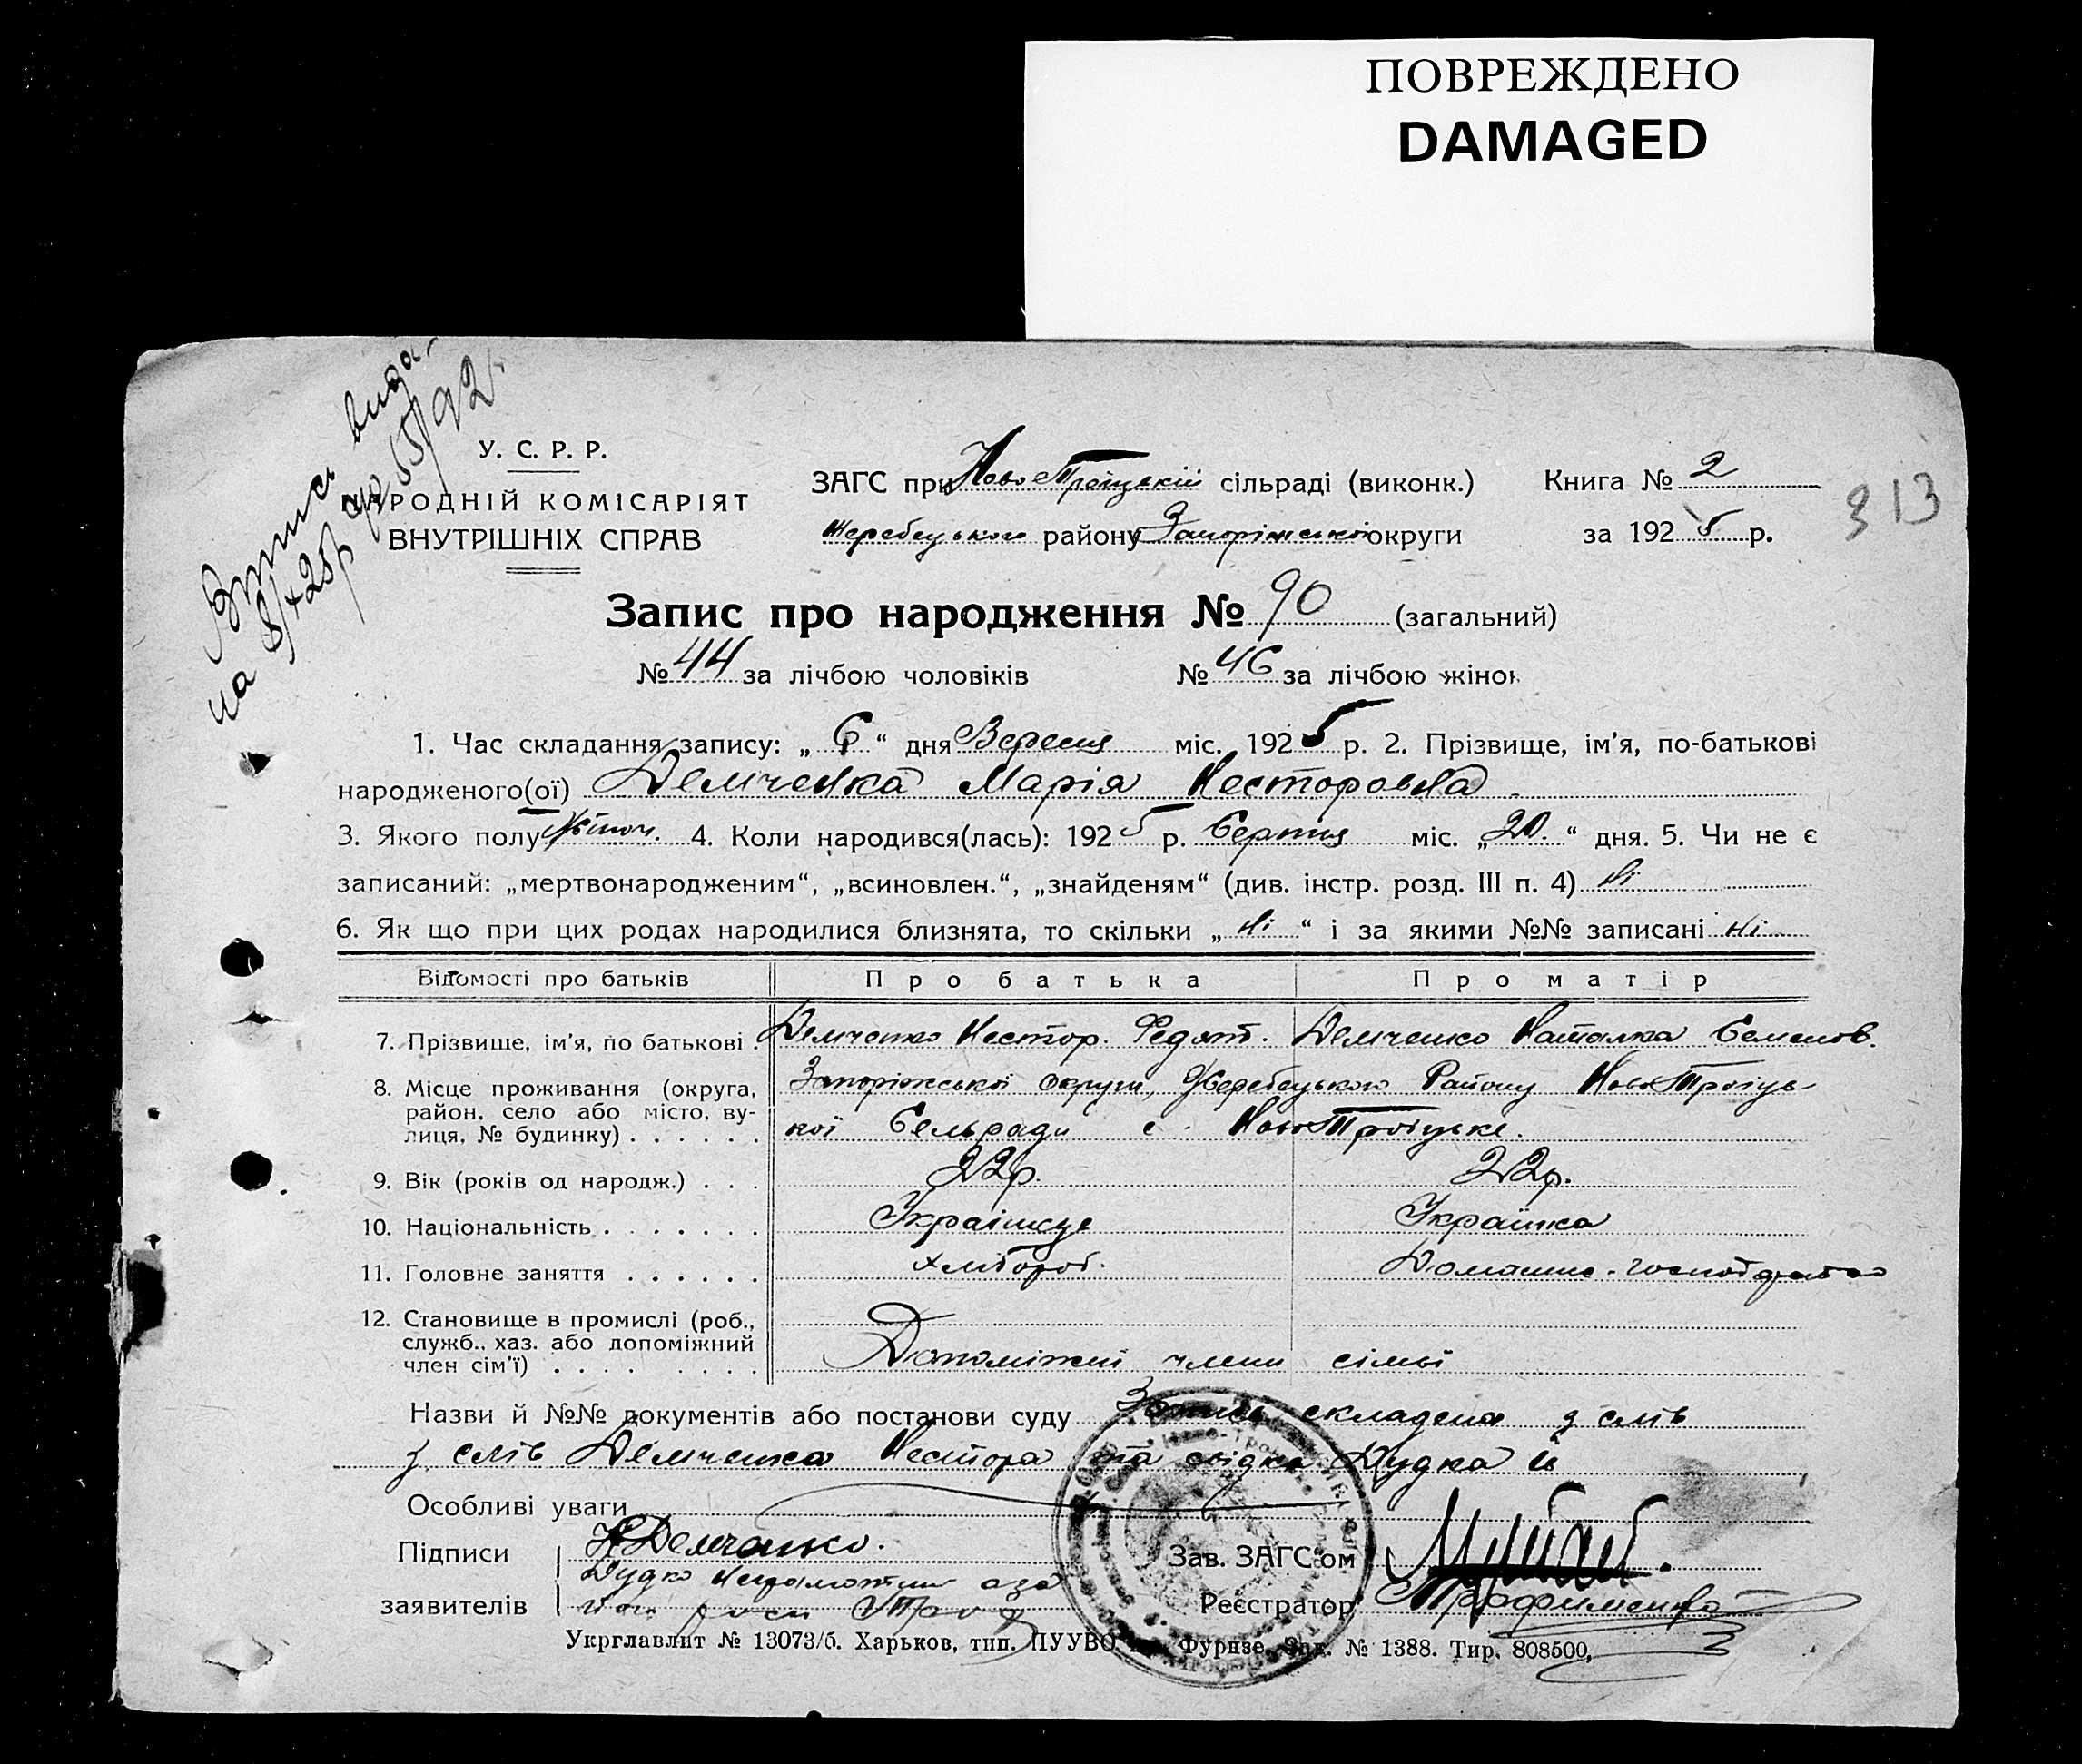 ПОВРЕЖДЕНО
DAMAGED
У. С. Р. Р.
НАРОДНІЙ КОМІСАРІЯТ
ВНУТРІШНІХ СПРАВ
ЗАГС при Ново Троіцькій сільраді (виконк.)
Жеребецького району Запоріжськоі округи
Книга № 2
за 1925 р.
313
Запис про народження № 90 (загальний)
№ 44 за лічбою чоловіків № 46 за лічбою жінок
1. Час складання запису: „ 6 “ дня Вересня міс. 1925 р. 2. Прізвище, ім’я, по-батькові
народженого(ої) Демченка Марія Несторовна
3. Якого полу Жіноч. 4. Коли народився(лась): 1925 р. Серпня міс. „ 20. “ дня. 5. Чи не є
записаний: „мертвонародженим“, „всиновлен.“, „знайденям“ (див. інстр. розд. III п. 4) ні
6. Як що при цих родах народилися близнята, то скільки „ ні “ і за якими №№ записані ні
Відомості про батьків Про батька Про матір
7. Прізвище, ім’я, по батькові . Демченко Нестор. Демченко Наталка Семенов.
8. Місце проживання (округа, Запоріжської округи, Жеребецького Району Ново Троіць-
район, село або місто, ву-
лиця, № будинку) . . . . . . кої Сельради с. Ново Троіцьке.
9. Вік (років од народж.) . . . 22р. 22р.
10. Національність . . . . . . . Украінець Українка
11. Головне заняття . . . . . . хлібороб. Домашнє господарство
12. Становище в промислі (роб.,
служб., хаз. або допоміжний
член сім’ї) . . . . . . . . Допоміжні члени сімьі
Назви й №№ документів або постанови суду Запись складена з слів
з слів Демченка Нестора та свідка Дудка й
Особливі уваги
Підписи Н Демченко. Зав. ЗАГС’ом
Дудко Неграмотний а за
заявителів Реєстратор Трофименко
Укрглавлит № 13073/б. Харьков, тип. ПУУВО Фурнзе, Зак. № 1388. Тир. 808500,